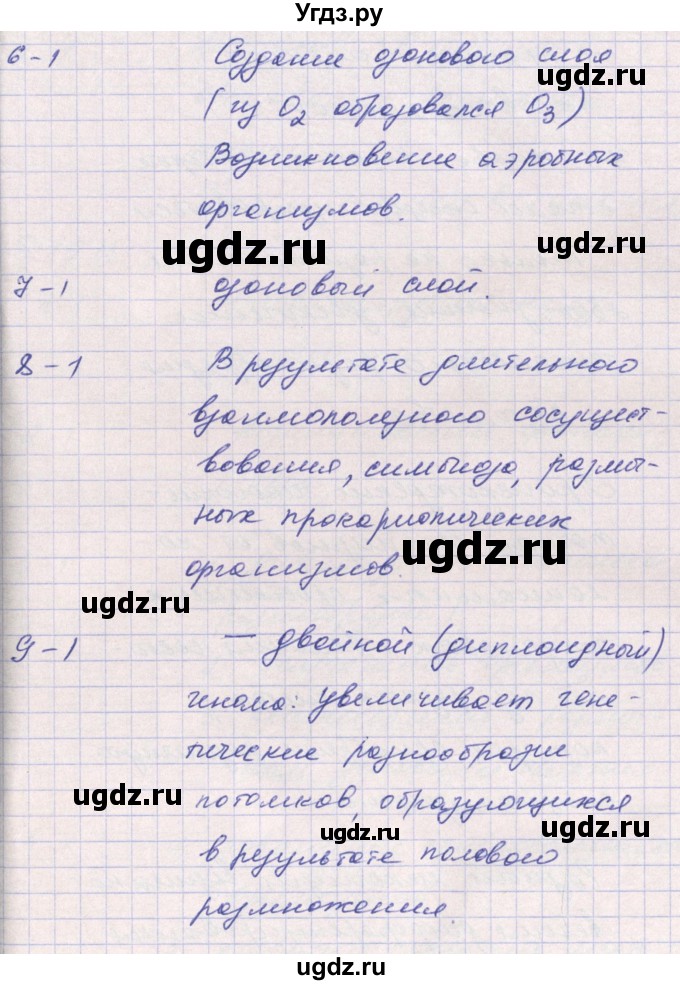 Угдз.ру
6-1 Создание озонового слоя
ugdz.ru
(из O₂ образовался O₃)
Возникновение аэробных
организмов.
ugdz.ru
ugdz.ru
7-1 озоновый слой.
8-1 В результате длительного
взаимополезного сосущест-
вования, симбиоза, различ-
ных прокариотических
ugdz.ru
организмов.
ugdz.ru
9-1 — двойной (диплоидный)
генома: увеличивает гене-
тические разнообразие
ugdz.ru
потомков, образующихся
ugdz.ru
ugdz.ru
в результате полового
размножения.
ugdz.ru